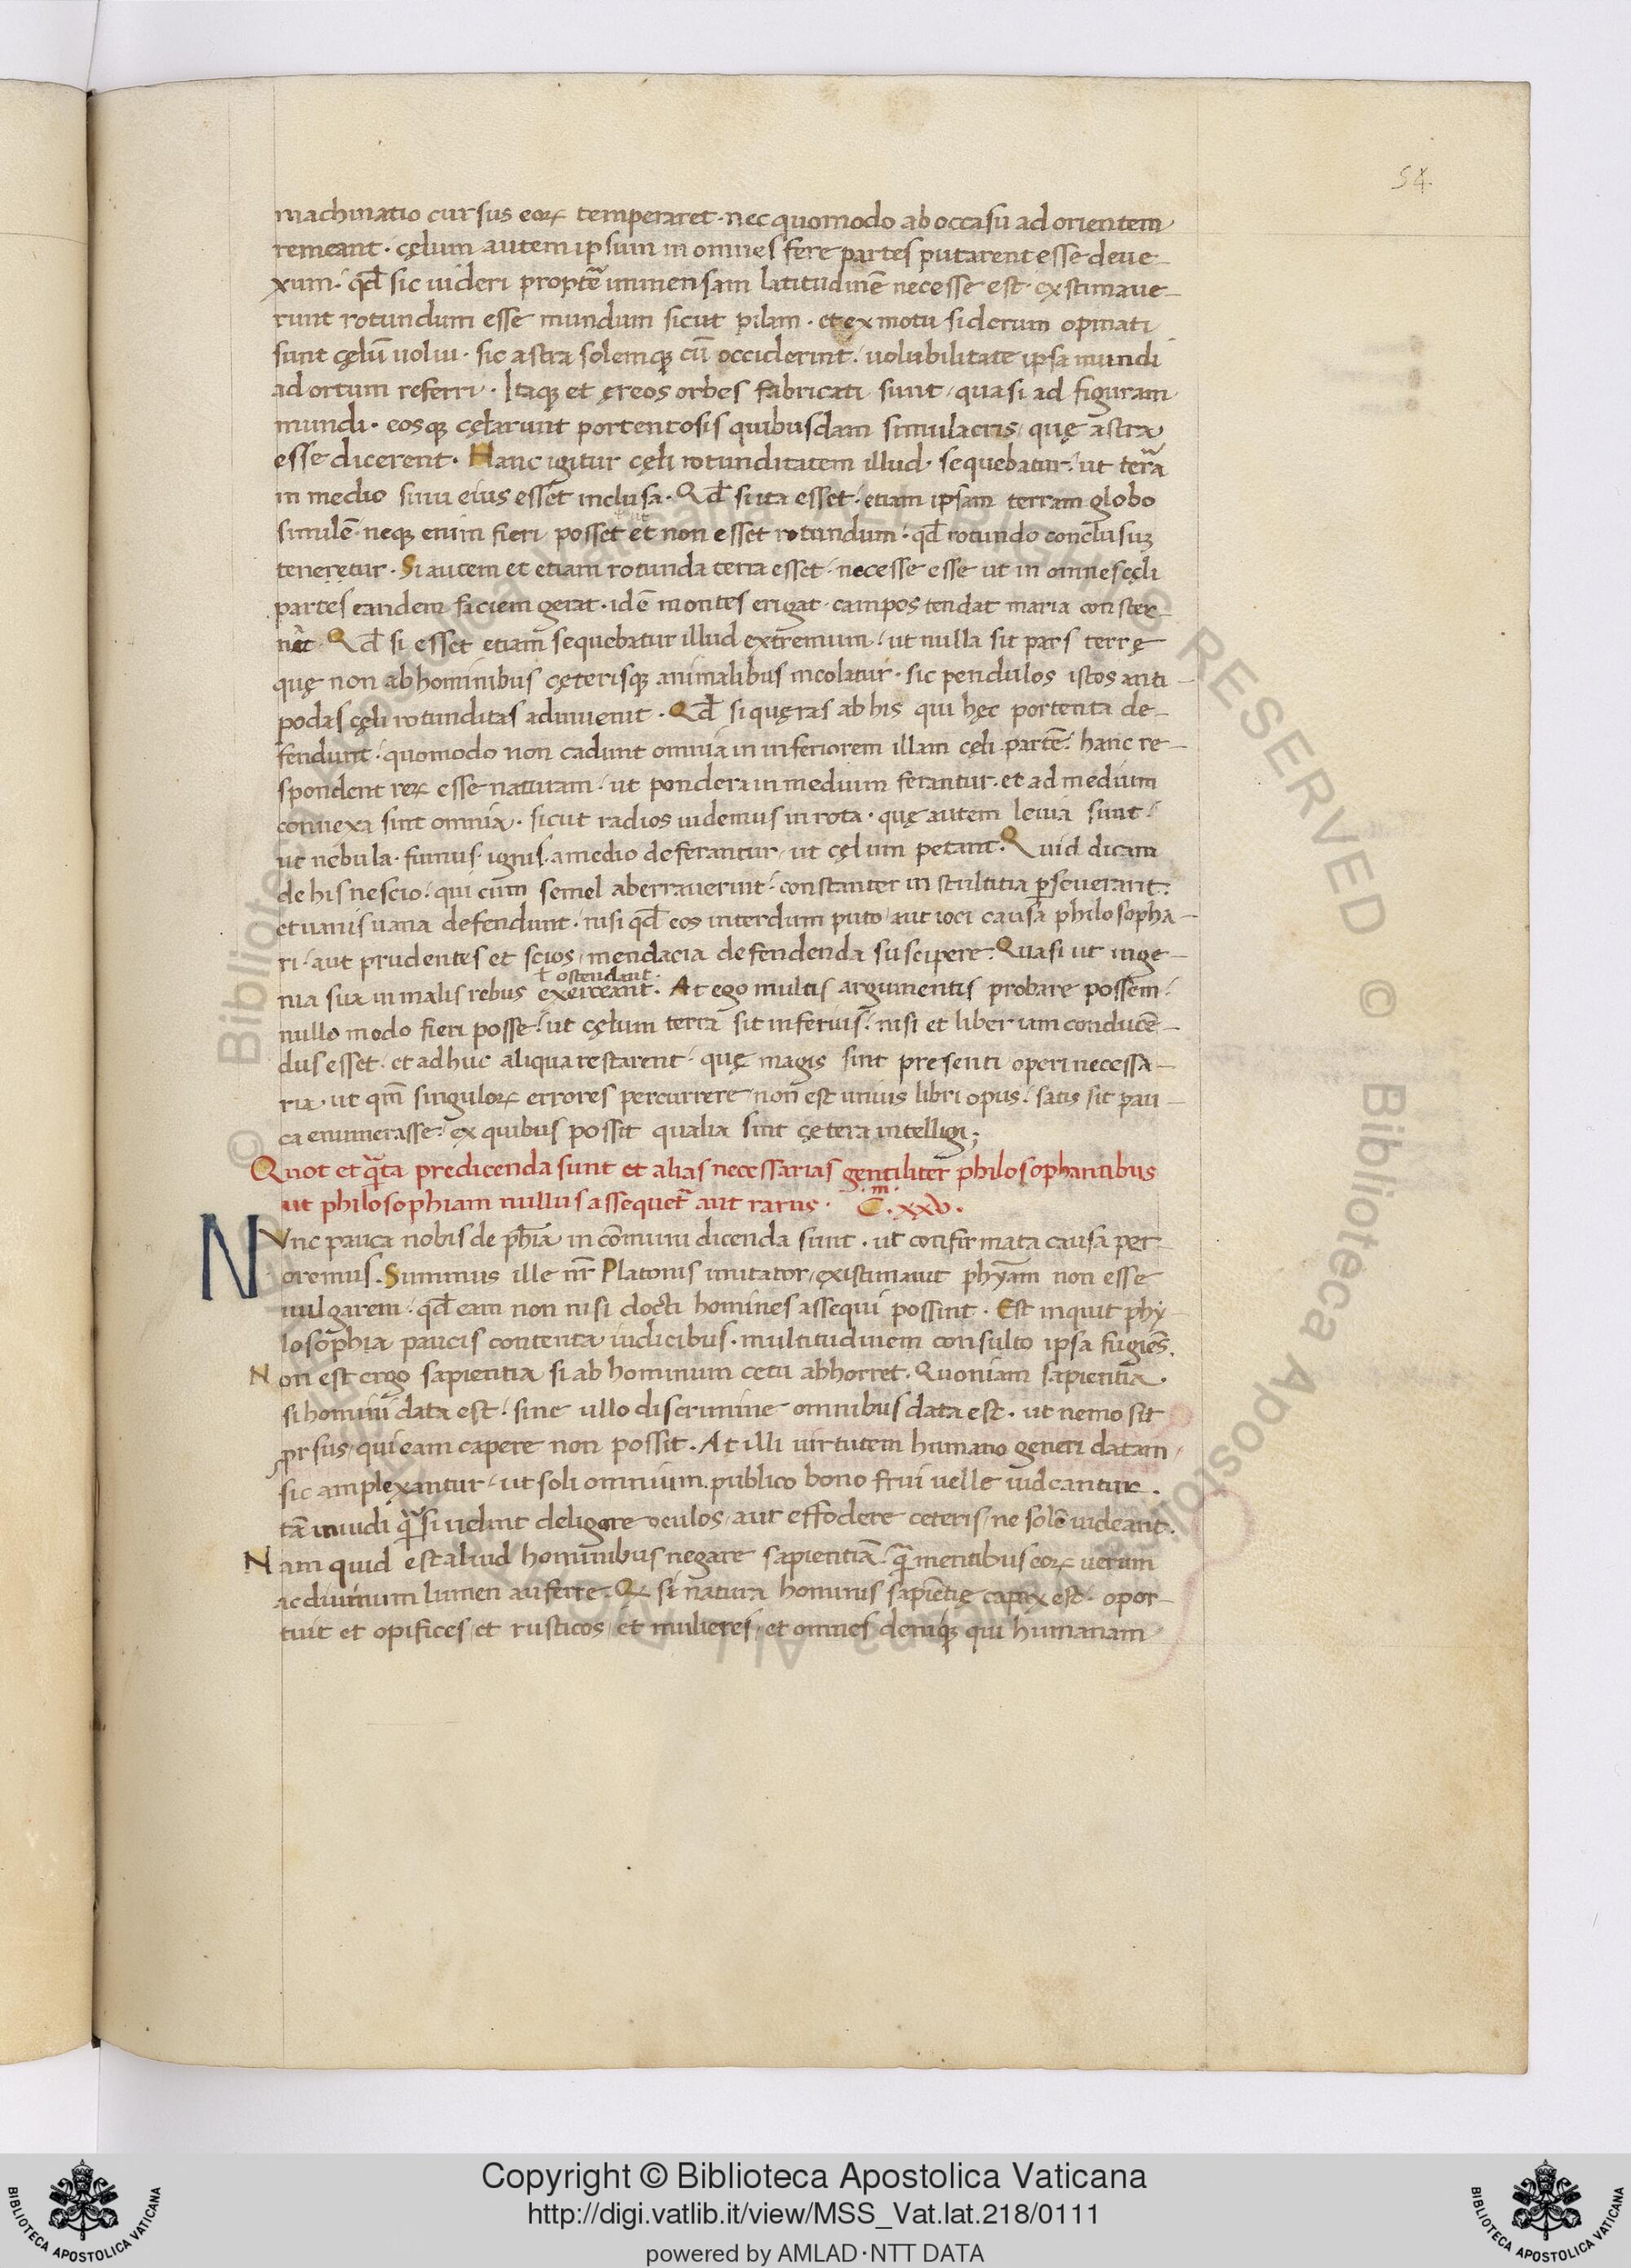 54
machinatio cursus eoꝝ temperaret · nec quomodo ab occasu ad orientem
remeant · cęlum autem ipsum in omnes fere partes putarent esse deue-
xum · qđ sic uideri propteā immensam latitudinē necesse est · exstimaue-
runt rotundum esse mundum sicut pilam · et ex motu siderum opinati
sunt cęlū uolui · sic astra solemqꝫ cū occiderint · uolubilitate ipsa mundi
ad ortum referri · Itaqꝫ et ęreos orbes fabricati sunt / quasi ad figuram
mundi · eosqꝫ cęlarunt portentosis quibusdam simulacris / quę astra
esse dicerent · Hanc igitur cęli rotunditatem illud sequebatur / ut terrā
in medio sinu eius esset inclusa · Qđ si ita esset / etiam ipsam terram globo
similē · neqꝫ enim fieri posset et non esset rotundum · qđ rotundo conclusuꝫ
teneretur · Si autem et etiam rotunda terra esset · necesse esse ut in omnes cęli
partes eandem faciem gerat · idē montes erigat · campos tendat maria conster-
nat · Qđ si esset etiam sequebatur illud extremum / ut nulla sit pars terrę
quę non ab hominibus cęterisqꝫ animalibus incolatur · sic pendulos istos anti-
podas cęli rotunditas adinuenit · Qđ si quęras ab his qui hęc portenta de-
fendunt / quomodo non cadunt omnia in inferiorem illam cęli partē / hanc re-
spondent reꝝ esse naturam / ut pondera in medium ferantur · et ad medium
conuexa sint omnia · sicut radios uidemus in rota · quę autem leuia sunt /
ut nebula · fumus · ignis · a medio deferantur / ut cęlum petant · Quid dicam
de his nescio / qui cum semel aberrauerint / constanter in stultitia ꝑseuerant /
et uanis uana defendunt · nisi qđ eos interdum puto / aut ioci causa philosopha-
ri / aut prudentes et scios / mendacia defendenda suscipere · Quasi ut inge-
ł ostendant ·
nia sua in malis rebus exerceant · At ego multis argumentis probare possem /
nullo modo fieri posse / ut cęlum terra sit inferius / nisi et liber iam conducē-
dus esset · et adhuc aliqua restarent · quę magis sint presenti operi necessa-
ria · ut qm̄ singuloꝝ errores percurrere / non est unius libri opus / satis sit pau-
ca enumerasse / ex quibus possit qualia sint cętera intelligi ;
Quot et q̄ta predicenda sunt et alias necessarias gentiliter philosophantibus
ut philosophiam nullus assequet᷑ aut rarus · C.m xxv.
Nunc pauca nobis de ph̄ia in cōmuni dicenda sunt · ut confirmata causa per-
oremus · Summus ille nr̄ Platonis imitator / existimauit phyam non esse
uulgarem · qđ eam non nisi docti homines assequi possint · Est inquit phy-
losophia paucis contenta iudicibus · multitudinem consulto ipsa fugiēs ·
Non est ergo sapientia si ab hominum cetu abhorret · Quoniam sapientia ·
si homini data est / sine ullo discrimine omnibus data est · ut nemo sit
ꝓrsus / qui eam capere non possit · At illi uirtutem humano generi datam
sic amplexantur / ut soli omnium publico bono frui uelle uideantur ·
tā inuidi q̄si uelint deligare oculos / aut effodere ceteris / ne solē uideant ·
Nam quid est aliud hominibus negare sapientiā / q̄ mentibus eoꝝ uerum
ac diuinum lumen auferre · Qđ si natura hominis sapiētię capax est · opor-
tuit et opifices / et rusticos / et mulieres / et omnes deniqꝫ qui humanam
© Biblioteca Apostolica Vaticana ALL RIGHTS RESERVED
Copyright © Biblioteca Apostolica Vaticana
http://digi.vatlib.it/view/MSS_Vat.lat.218/0111
powered by AMLAD·NTT DATA
BIBLIOTECA APOSTOLICA VATICANA
BIBLIOTECA APOSTOLICA VATICANA